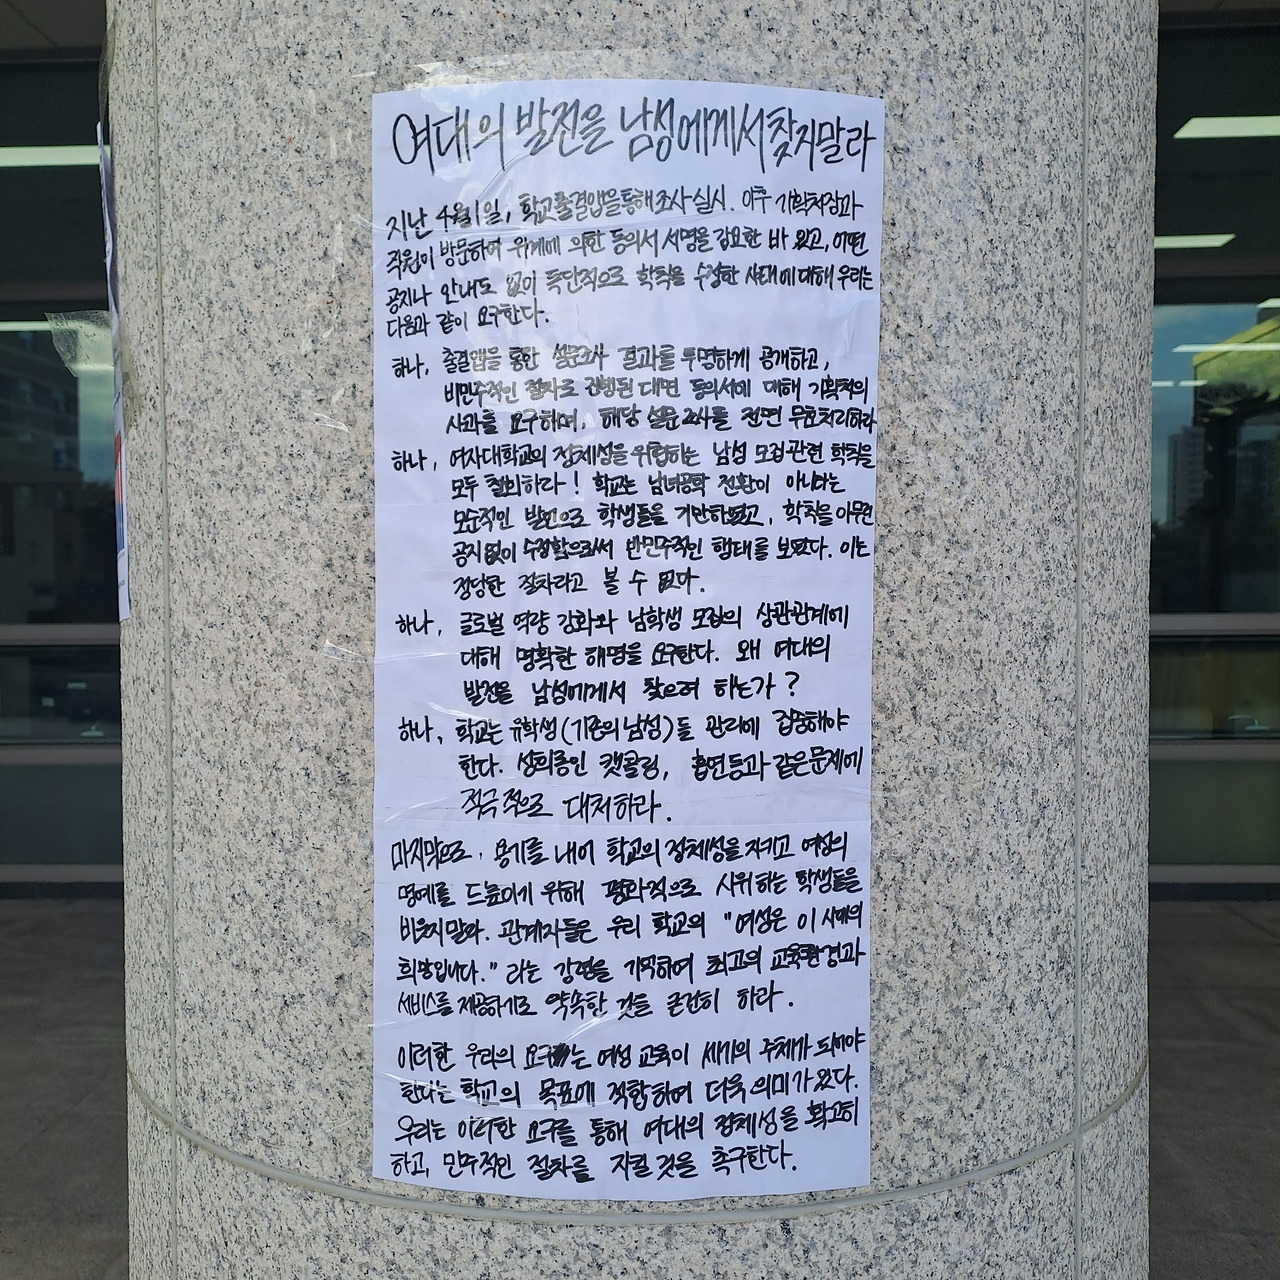 여대의 발전을 남성에게서 찾지말라
지난 4월1일, 학교출결앱을통해조사 실시. 이후 기획처장과
직원이 방문하여 위계에 의한 동의서 서명을 강요한 바 있고, 어떤
공지나 안내도 없이 독단적으로 학칙을 수정한 사태에대해 우리는
다음과 같이 요구한다.
하나, 출결앱을 통한 설문조사 결과를 투명하게 공개하고,
비민주적인 절차로 진행된 대면 동의서에 대해 기획처의
사과를 요구하며, 해당 설문조사를 전면 무효처리하라
하나, 여자대학교의 정체성을 위협하는 남성 모집 관련 학칙을
모두 철회하라! 학교는 남녀공학 전환이 아니라는
모순적인 발언으로 학생들을 기만하였고, 학칙을 아무런
공지없이 수정함으로써 반민주적인 행태를 보였다. 이는
정당한 절차라고 볼 수 없다.
하나, 글로벌 역량 강화와 남학생 모집의 상관관계에
대해 명확한 해명을 요구한다. 왜 여대의
발전을 남성에게서 찾으려 하는가?
하나, 학교는 유학생(기존의 남성)들 관리에 집중해야
한다. 성희롱인 캣콜링, 흡연등과 같은 문제에
적극적으로 대처하라.
마지막으로, 용기를 내어 학교의 정체성을 지키고 여성의
명예를 드높이게 위해 평화적으로 시위하는 학생들을
비웃지말라. 관계자들은 우리 학교의 "여성은 이 시대의
희망입니다." 라는 강령을 기억하여 최고의 교육환경과
서비스를 제공하기로 약속한 것을 굳건히 하라.
이러한 우리의 요구는 여성 교육이 세계의 주체가 되어야
한다는 학교의 목표에 적합하여 더욱 의미가 있다.
우리는 이러한 요구를 통해 여대의 정체성을 확고히
하고, 민주적인 절차를 지킬 것을 촉구한다.